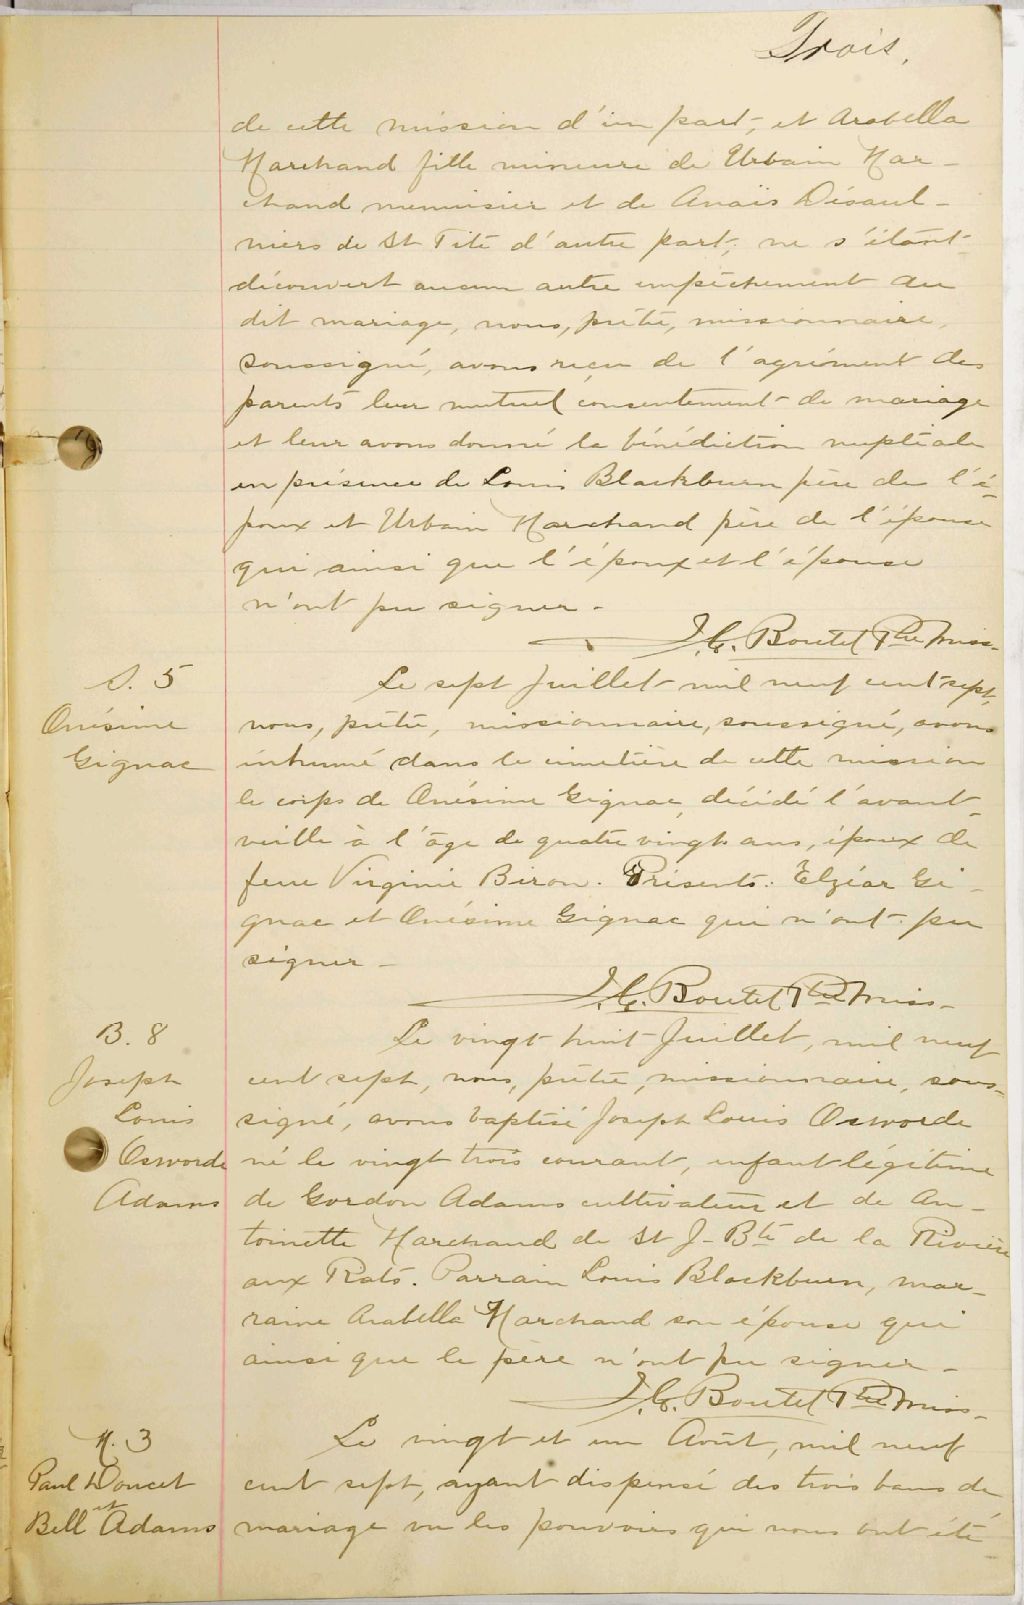 Trois.
de cette mission d'un part, et Arabella
Marchand fille mineure de Urbain Mar-
chand menuisier et de Anaïs Désaul-
niers de St Tite d'autre part; ne s'étant
découvert aucun autre empêchement au
dit mariage, nous, prêtre, missionnaire,
soussigné, avons reçu de l'agrément des
parents leur mutuel consentement de mariage
et leur avons donné la bénédiction nuptiale
en présence de Louis Blackburn père de l'é-
poux et Urbain Marchand père de l'épouse
qui ainsi que l'époux et l'épouse
n'ont pu signer.
J. C. Boutet Ptre Miss.
S. 5
Onésime
Gignac
Le sept Juillet mil neuf cent sept,
nous, prêtre, missionnaire, soussigné, avons
inhumé dans le cimetière de cette mission
le corps de Onésime Gignac, décédé l'avant-
veille à l'âge de quatre vingts ans, époux de
feue Virginie Biron. Présents: Elzéar Gi-
gnac et Onésime Gignac qui n'ont pu
signer -
J. C. Boutet Ptre Miss.
B. 8
Joseph
Louis
Osworde
Adams
Le vingt huit Juillet, mil neuf
cent sept, nous, prêtre, missionnaire, sous-
signé, avons baptisé Joseph Louis Osworde
né le vingt trois courant, enfant légitime
de Gordon Adams cultivateur et de An-
toinette Marchand de St J-Bte de la Rivière
aux Rats. Parrain Louis Blackburn, mar-
raine Arabella Marchand son épouse qui
ainsi que le père n'ont pu signer -
J. C. Boutet Ptre Miss.
M. 3
Paul Doucet
et
Bell Adams
Le vingt et un Août, mil neuf
cent sept, ayant dispensé des trois bans de
mariage vu les pouvoirs qui nous ont été